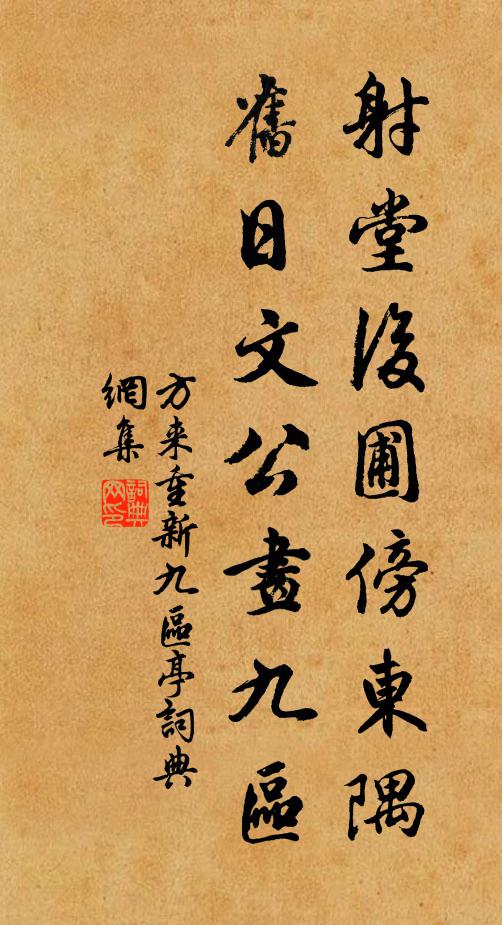 射堂後圃傍東隅
舊日文公畫九區
方来重新九區亭詞典
網集
詞典
网印